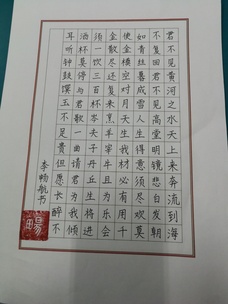 君不见黄河之水天上来奔流到海
不复回君不见高堂明镜悲白发朝
如青丝暮成雪人生得意须尽欢莫
使金樽空对月天生我材必有用千
金散尽还复来烹羊宰牛且为乐会
须一饮三百杯岑夫子丹丘生将进
酒杯莫停与君歌一曲请君为我倾
耳听钟鼓馔玉不足贵但愿长醉不
李畅航书